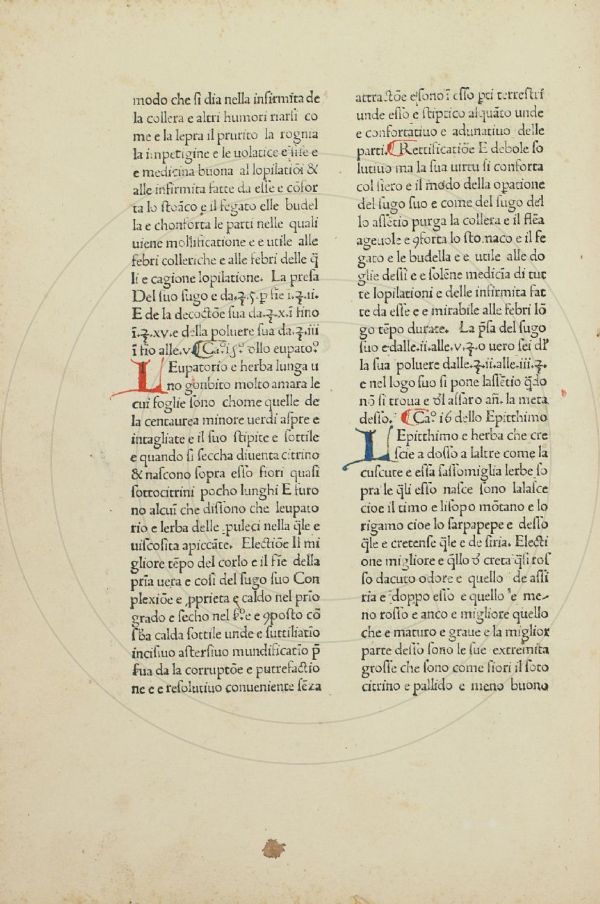 modo che si dia nella infirmita de
la collera e altri humori riarsi co
me e la lepra il prurito la rognia
la inpetigine e le uolatice e
e medicina buona al lopilatiõi &
alle infirmita fatte da esse e cõfor
ta lo stoãco e il fegato elle budel
la e chonforta le parti nelle quali
uiene mollificatione e e utile alle
febri colleriche e alle febri delle q̃
li e cagione lopilatione. La presa
Del suo sugo e da.ʒ.5.p fie i.ʒ.ii.
E de la decoctõe sua da.ʒ.x.ĩ fino
ĩ.ʒ.xv.e della poluere sua da.ʒ.iii
ĩ fio alle.v. Ca.º 15.º ollo eupato.º
LEupatorio e herba lunga u
no gonbito molto amara le
cui foglie sono chome quelle de
la centaurea minore uerdi aspre e
intagliate e il suo stipite e sottile
e quando si seccha diuenta citrino
& nascono sopra esso fiori quasi
sottocitrini pocho lunghi E furo
no alcuĩ che dissono che leupato
rio e lerba delle puleci nella q̃le e
uiscosita apiccãte. Electiõe Il mi
gliore tẽpo del corlo e il fie della
prĩa uera e cosi del sugo suo Con
plexiõe e ꝓprieta e caldo nel prĩo
grado e secho nel e ꝯposto cõ
calda sottile unde e suttiliatio
incisiuo astersiuo mundificatio p̃
sua da la corruptõe e putrefactio
ne e e resolutiuo conueniente sẽza
attractõe e sono ĩ esso pti terrestri
unde esso e stiptico alquãto unde
e confortatiuo e adunatiuo delle
parti. Rettificatiõe E debole so
lutiuo ma la sua uirtu si conforta
col siero e il modo della opatione
del sugo suo e come del sugo del
lo assẽtio purga la collera e il flẽa
ageuole e ꝯforta lo stonaco e il fe
gato e le budella e e utile alle do
glie dessi e e solẽne medicĩa di tut
te lopilationi e delle infirmita fat
te da esse e e mirabile alle febri lõ
go tẽpo durate. La p̃sa del sugo
suo e dalle.ii.alle.v.ʒ.o uero sei
la sua poluere dalle.ʒ.ii.alle.iii.ʒ.
e nel logo suo si pone lassẽtio q̃do
nõ si troua e assaro añ. la meta
desso. Ca.º 16 dello Epitthimo
LEpitthimo e herba che cre
scie a dosso a laltre come la
cuscute e essa sassomiglia lerbe so
pra le q̃li esso nasce sono lalasce
cioe il timo e lisopo mõtano e lo
rigamo cioe lo sarpapepe e desso
q̃le e cretense q̃le e de siria. Electi
one migliore e q̃llo creta q̃si ros
so dacuto odore e quello de assi
ria e doppo esso e quello e me-
no rosso e anco e migliore quello
che e maturo e graue e la miglior
parte desso sono le sue extremita
grosse che sono come fiori il soto
citrino e pallido e meno buono